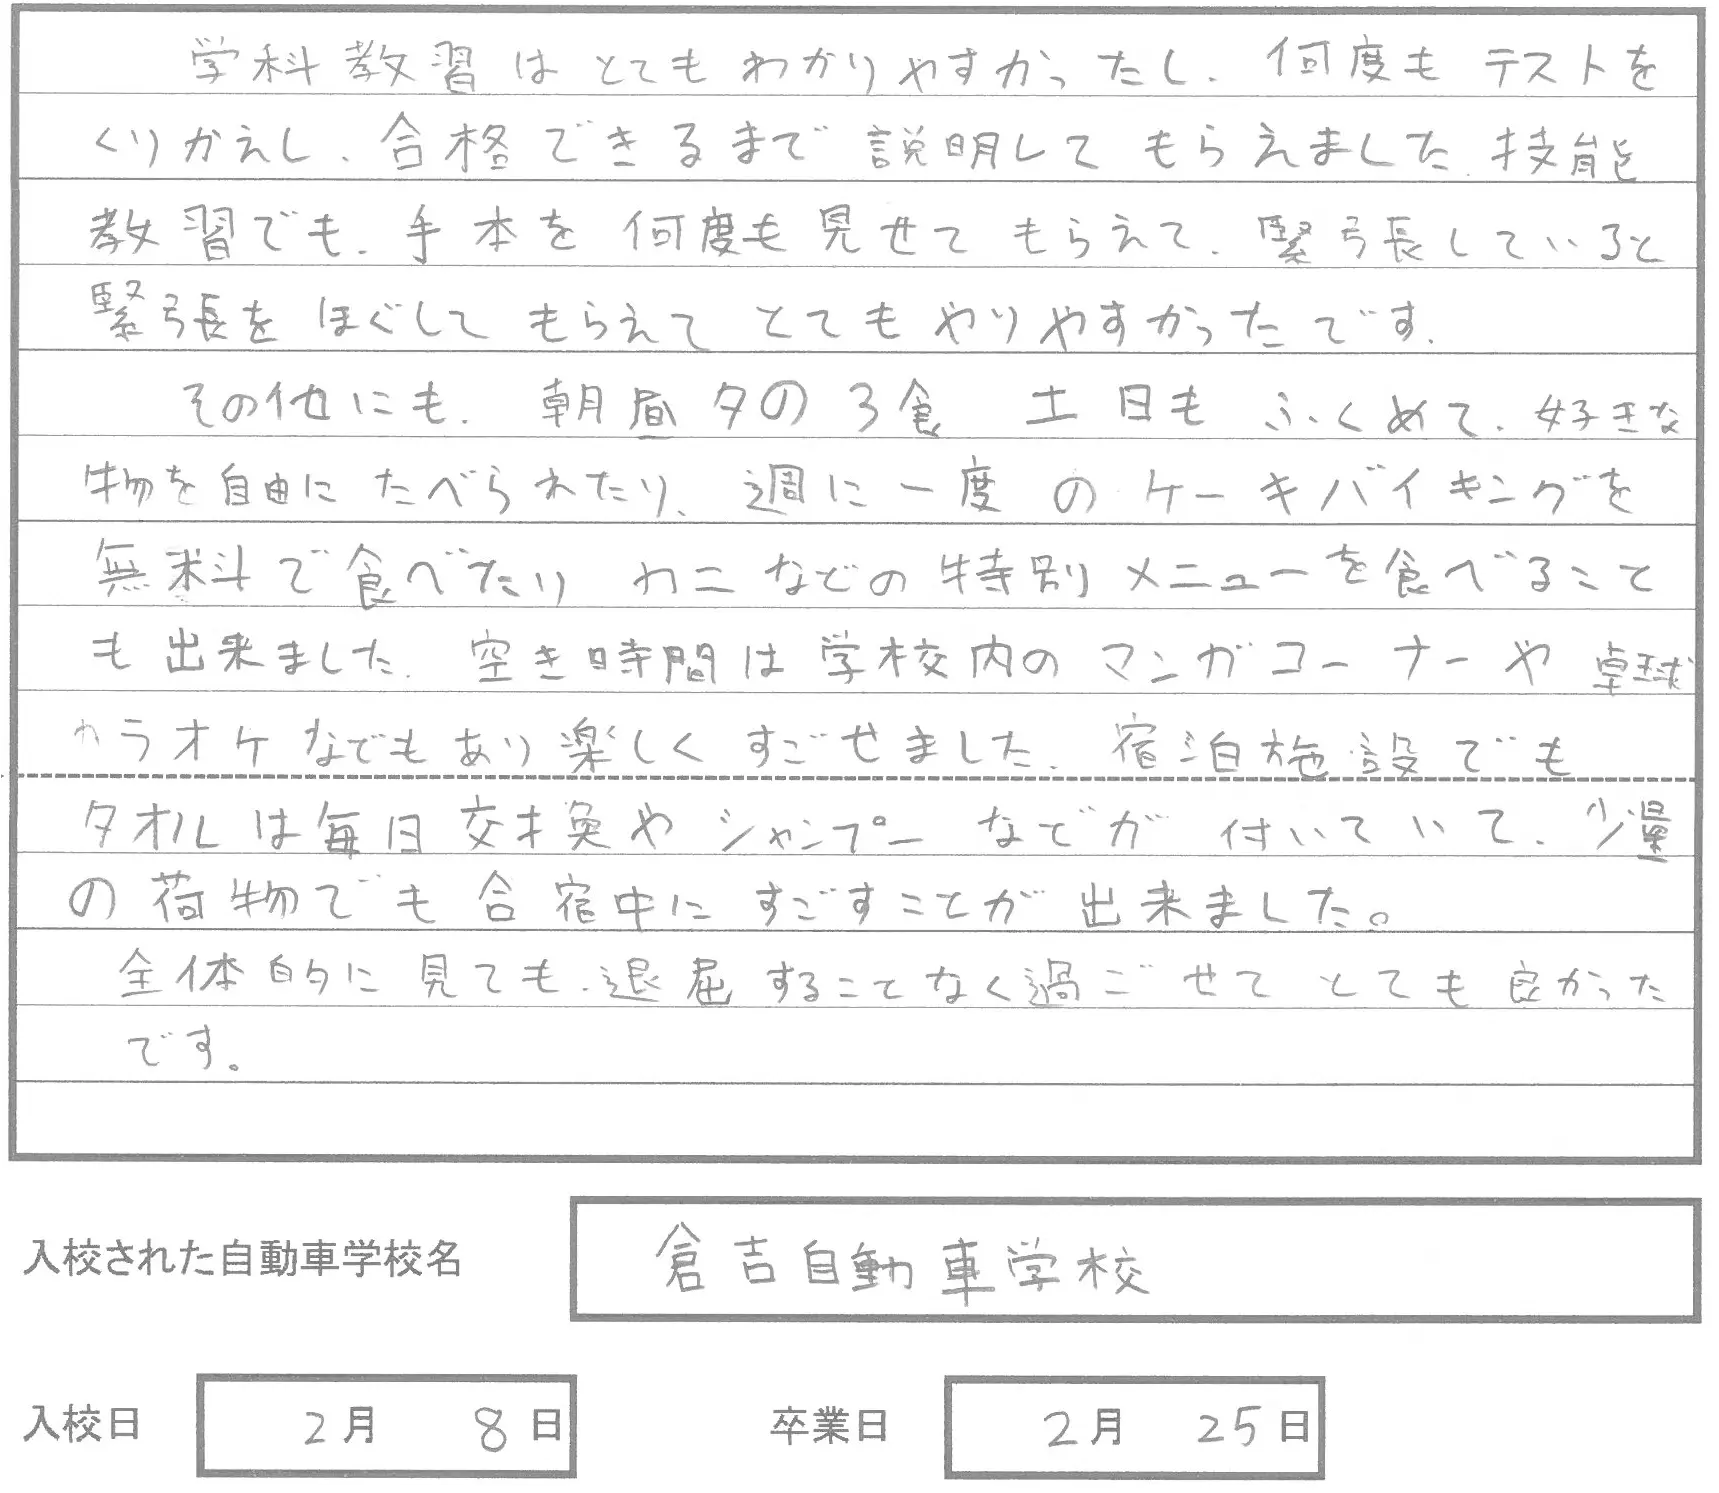 学科教習はとてもわかりやすかったし、何度もテストを
くりかえし、合格できるまで説明してもらえました。技能
教習でも、手本を何度も見せてもらえて、緊張していると
緊張をほぐしてもらえてとてもやりやすかったです。
その他にも、朝昼夕の3食 土日もふくめて、好きな
物を自由にたべられたり、週に一度のケーキバイキングを
無料で食べたり カニなどの特別メニューを食べること
も出来ました。空き時間は学校内のマンガコーナーや卓球
カラオケなどもあり楽しくすごせました。宿泊施設でも
タオルは毎日交換やシャンプーなどが付いていて、少量
の荷物でも合宿中にすごすことが出来ました。
全体的に見ても、退屈することなく過ごせてとても良かった
です。
入校された自動車学校名 倉吉自動車学校
入校日 2月 8日 卒業日 2月 25日